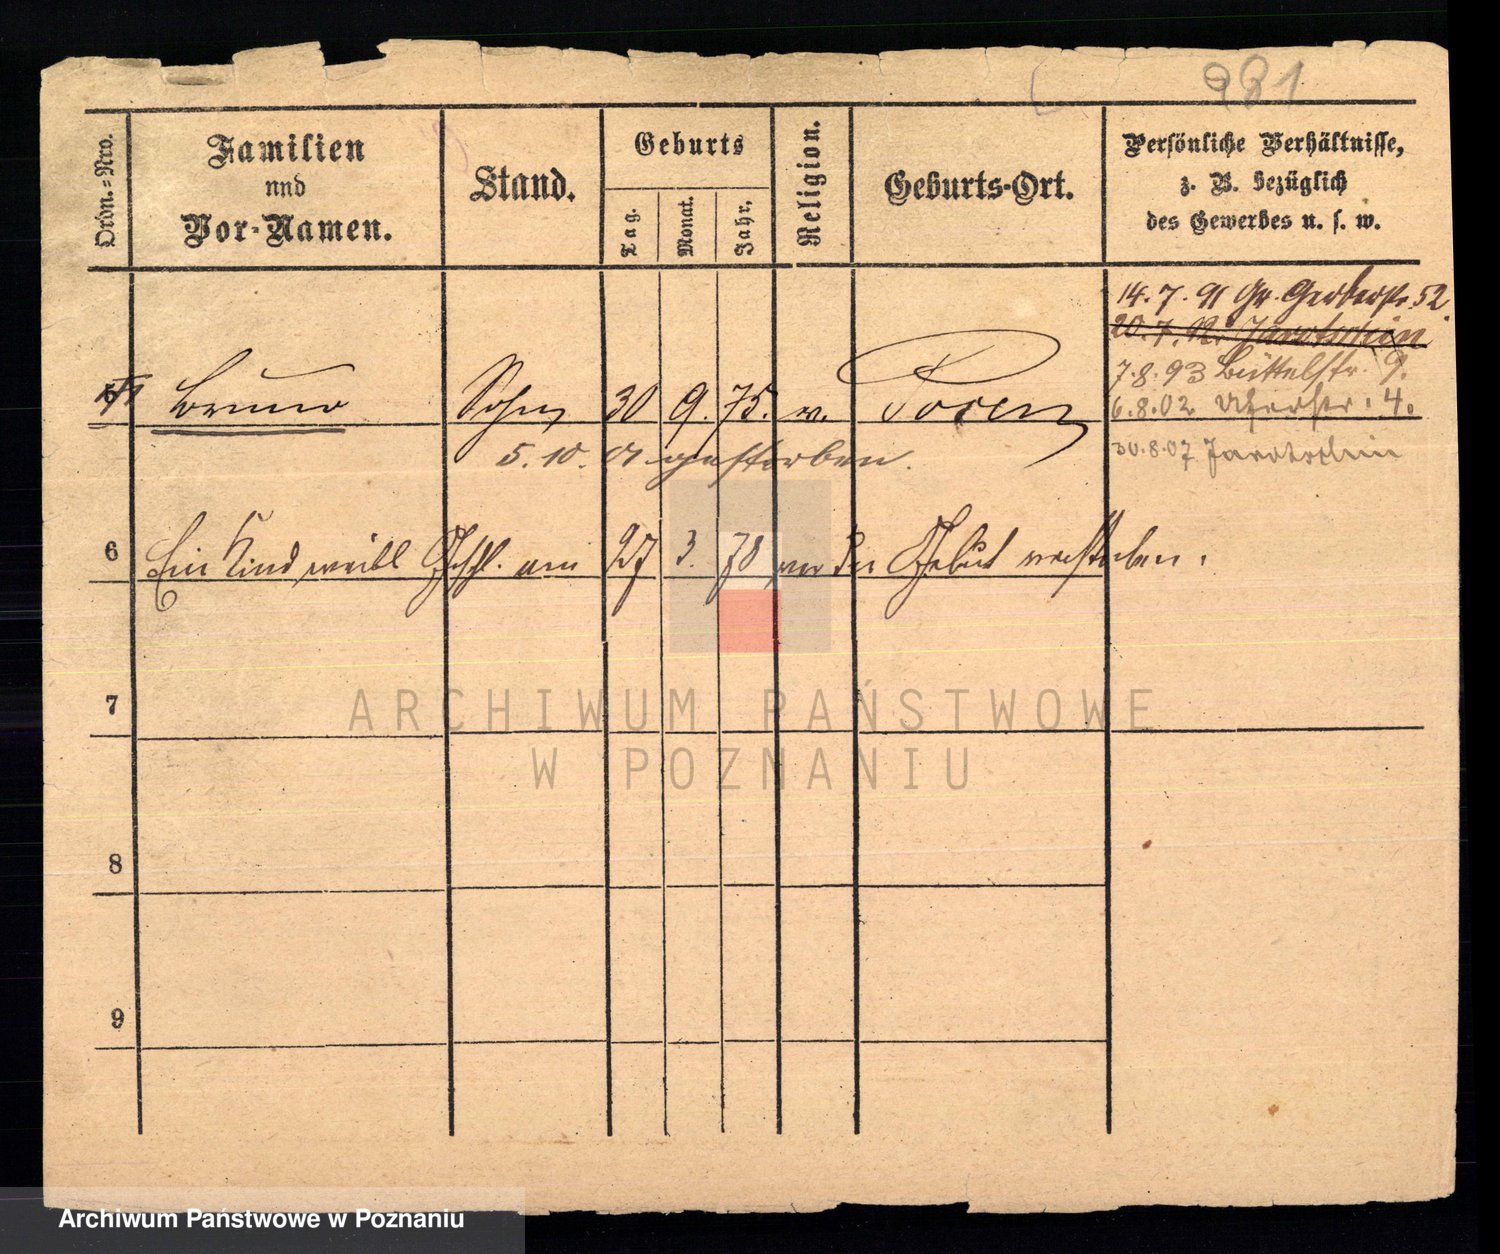 981
Ordn.=Nro.
Familien
und
Vor-Namen.
Stand.
Geburts
Tag.
Monat.
Jahr.
Religion.
Geburts-Ort.
Persönliche Verhältnisse,
z. B. bezüglich
des Gewerbes u. s. w.
14.7.91 Gr. Gerberstr. 52
20.7.92. Jarotschin
7.8.93 Büttelstr. 9.
6.8.02 Uferstr. 4.
30.8.07 Jarotschin
Bruno Sohn 30 9. 75. Posen
5.10.01 gestorben.
6 Ein Kind weibl Gschl. am 27 3. 78 vor der Geburt verstorben.
7
8
9
ARCHIWUM PAŃSTWOWE
W POZNANIU
Archiwum Państwowe w Poznaniu